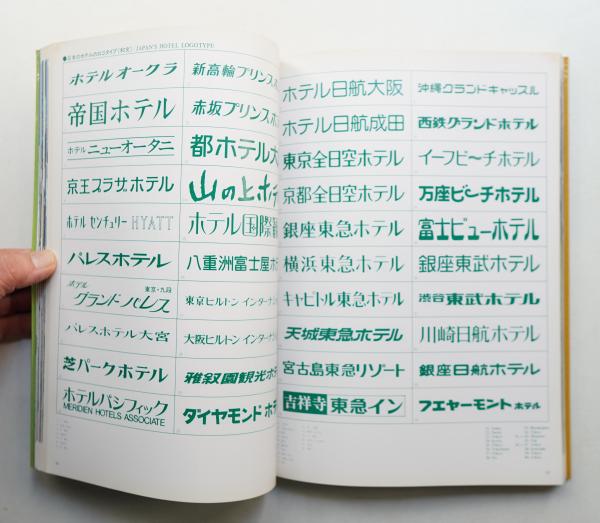 ●日本のホテルのロゴタイプ〈和文〉 JAPAN'S HOTEL LOGOTYPE
ホテルオークラ
帝国ホテル
ホテル ニューオータニ
京王プラザホテル
ホテル センチュリー HYATT
パレスホテル
ホテル 東京・九段
グランドパレス
パレスホテル大宮
芝パークホテル
ホテルパシフィック
MERIDIEN HOTELS ASSOCIATE
新高輪プリンスホ
赤坂プリンスホ
都ホテル大
山の上ホテ
ホテル国際観
八重洲富士屋ホ
東京ヒルトン インターナシ
大阪ヒルトン インターナシ
雅叙園観光ホ
ダイヤモンド ホ
ホテル日航大阪
ホテル日航成田
東京全日空ホテル
京都全日空ホテル
銀座東急ホテル
横浜東急ホテル
キャピトル東急ホテル
天城東急ホテル
宮古島東急リゾート
吉祥寺 東急イン
沖縄グランドキャッスル
西鉄グランドホテル
イーフビーチホテル
万座ビーチホテル
富士ビューホテル
銀座東武ホテル
渋谷東武ホテル
川崎日航ホテル
銀座日航ホテル
フエヤーモント ホテル